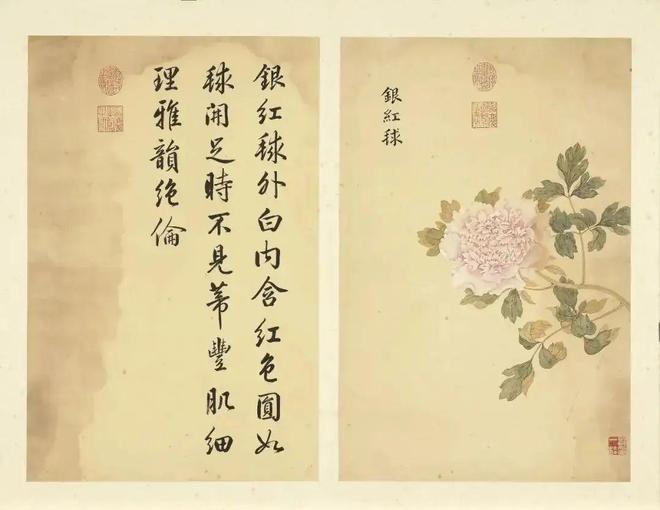 銀紅毬外白內含紅色圓如
毬開足時不見蒂豐肌細
理雅韻絶倫
銀紅毬